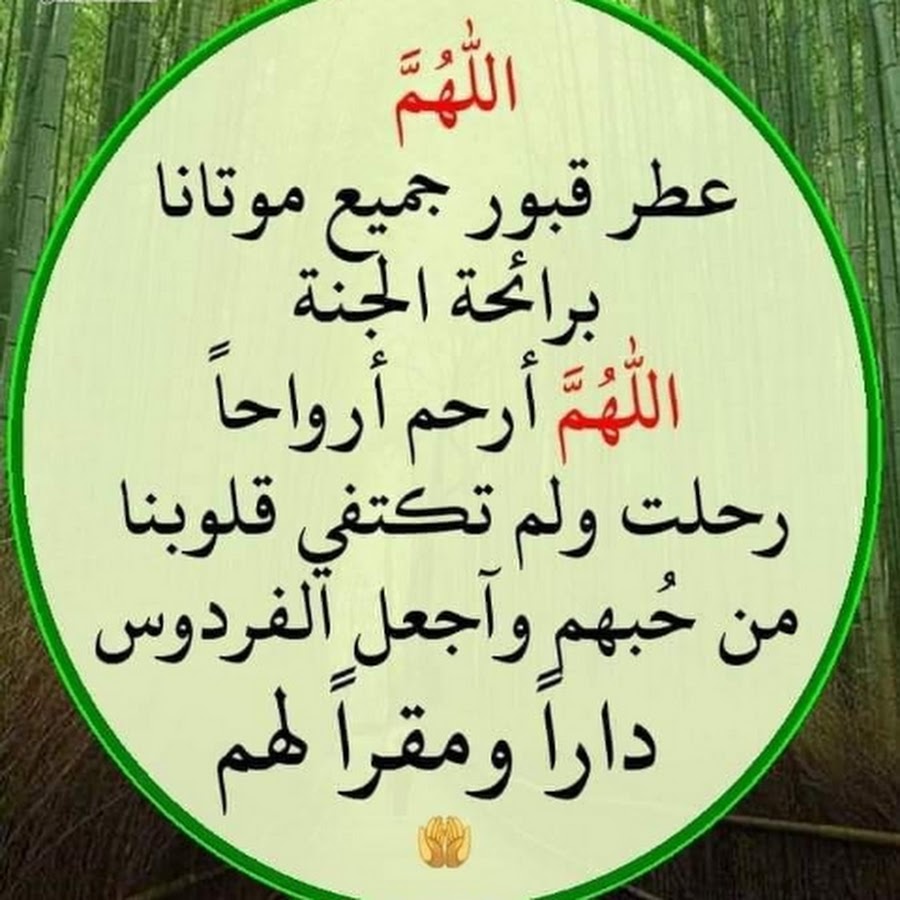 اللّٰهُمَّ
عطر قبور جميع موتانا
برائحة الجنة
اللّٰهُمَّ أرحم أرواحاً
رحلت ولم تكتفي قلوبنا
من حُبهم وآجعل الفردوس
داراً ومقراً لهم